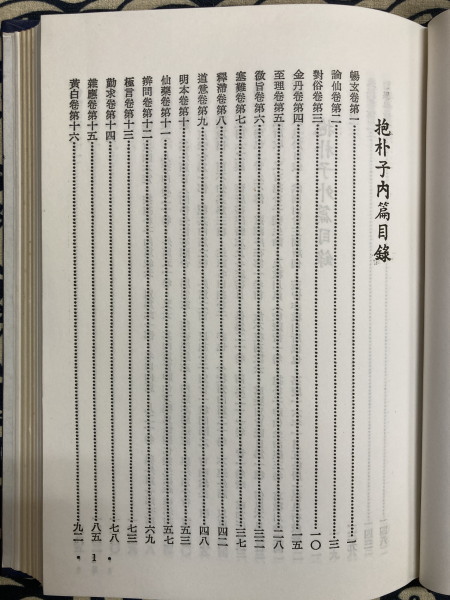 抱朴子內篇目錄
暢玄卷第一……一
論仙卷第二……三
對俗卷第三……一〇
金丹卷第四……一五
至理卷第五……二八
微旨卷第六……三二
塞難卷第七……三七
釋滯卷第八……四二
道意卷第九……四八
明本卷第十……五三
仙藥卷第十一……五七
辨問卷第十二……六九
極言卷第十三……七三
勤求卷第十四……七八
雜應卷第十五……八五
黃白卷第十六……九二
• 1 •